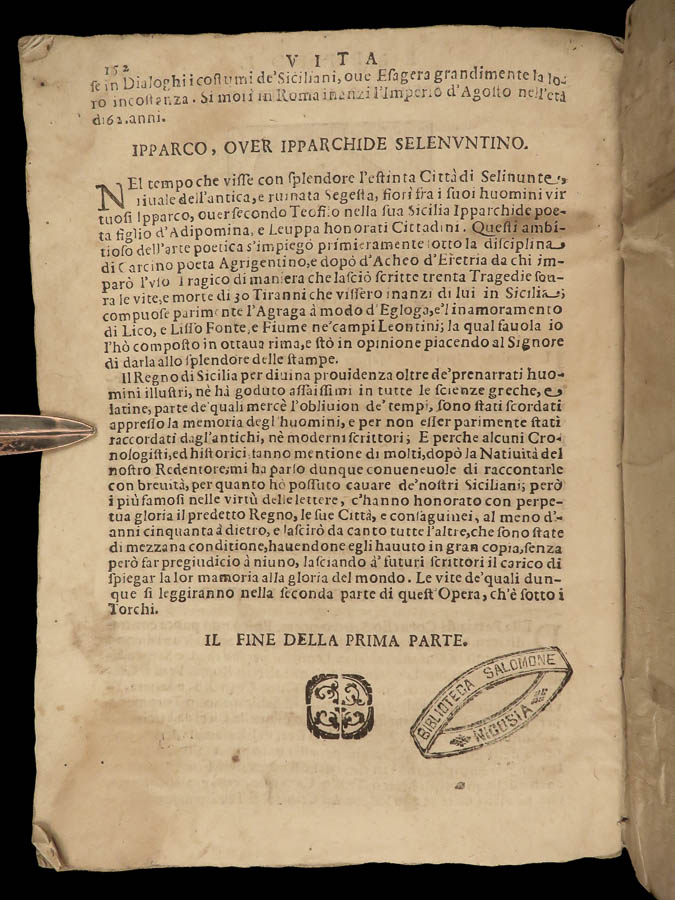 152
VITA
se in Dialoghi i costumi de'Siciliani, oue Esagera grandimente la lo-
ro incostanza. Si morì in Roma inanzi l'Imperio d'Agosto nell'età
di 62. anni.
IPPARCO, OVER IPPARCHIDE SELENVNTINO.
NEl tempo che visse con splendore l'estinta Città di Selinunte,
riuale dell'antica, e ruinata Segesta, fiorì fra i suoi huomini vir
tuosi Ipparco, ouer secondo Teofilo nella sua Sicilia Ipparchide poe-
ta figlio d'Adipomina, e Leuppa honorati Cittadini. Questi ambi-
tioso dell'arte poetica s'impiegò primieramente sotto la disciplina
di Carcino poeta Agrigentino, e dopò d'Acheo d'Eretria da chi im-
parò l'vso Tragico di maniera che lasciò scritte trenta Tragedie sou-
ra le vite, e morte di 30 Tiranni che vissero inanzi di lui in Sicilia;
compuose parimente l'Agraga à modo d'Egloga, e'l inamoramento
di Lico, e Lisso Fonte, e Fiume ne'campi Leontini; la qual fauola io
l'hò composto in ottaua rima, e stò in opinione piacendo al Signore
di darla allo splendore delle stampe.
Il Regno di Sicilia per diuina prouidenza oltre de'prenarrati huo-
mini illustri, nè hà goduto assaissimi in tutte le scienze greche, e
latine, parte de'quali mercè l'obliuion de' tempi, sono stati scordati
appresso la memoria degl'huomini, e per non esser parimente stati
raccordati dagl'antichi, nè moderni scrittori; E perche alcuni Cro-
nologisti, ed historici fanno mentione di molti, dopò la Natiuità del
nostro Redentore; mi ha parso dunque conueneuole di raccontarle
con breuità, per quanto hò possuto cauare de'nostri Siciliani; però
i più famosi nelle virtù delle lettere, c'hanno honorato con perpe-
tua gloria il predetto Regno, le sue Città, e consaguinei, al meno d'-
anni cinquanta à dietro, e lascirò da canto tutte l'altre, che sono state
di mezzana conditione, hauendone egli hauuto in gran copia, senza
però far pregiudicio à niuno, lasciando à' futuri scrittori il carico di
spiegar la lor mamoria alla gloria del mondo. Le vite de'quali dun-
que si leggiranno nella seconda parte di quest'Opera, ch'è sotto i
Torchi.
IL FINE DELLA PRIMA PARTE.
BIBLIOTECA SALOMONE
NICOSIA